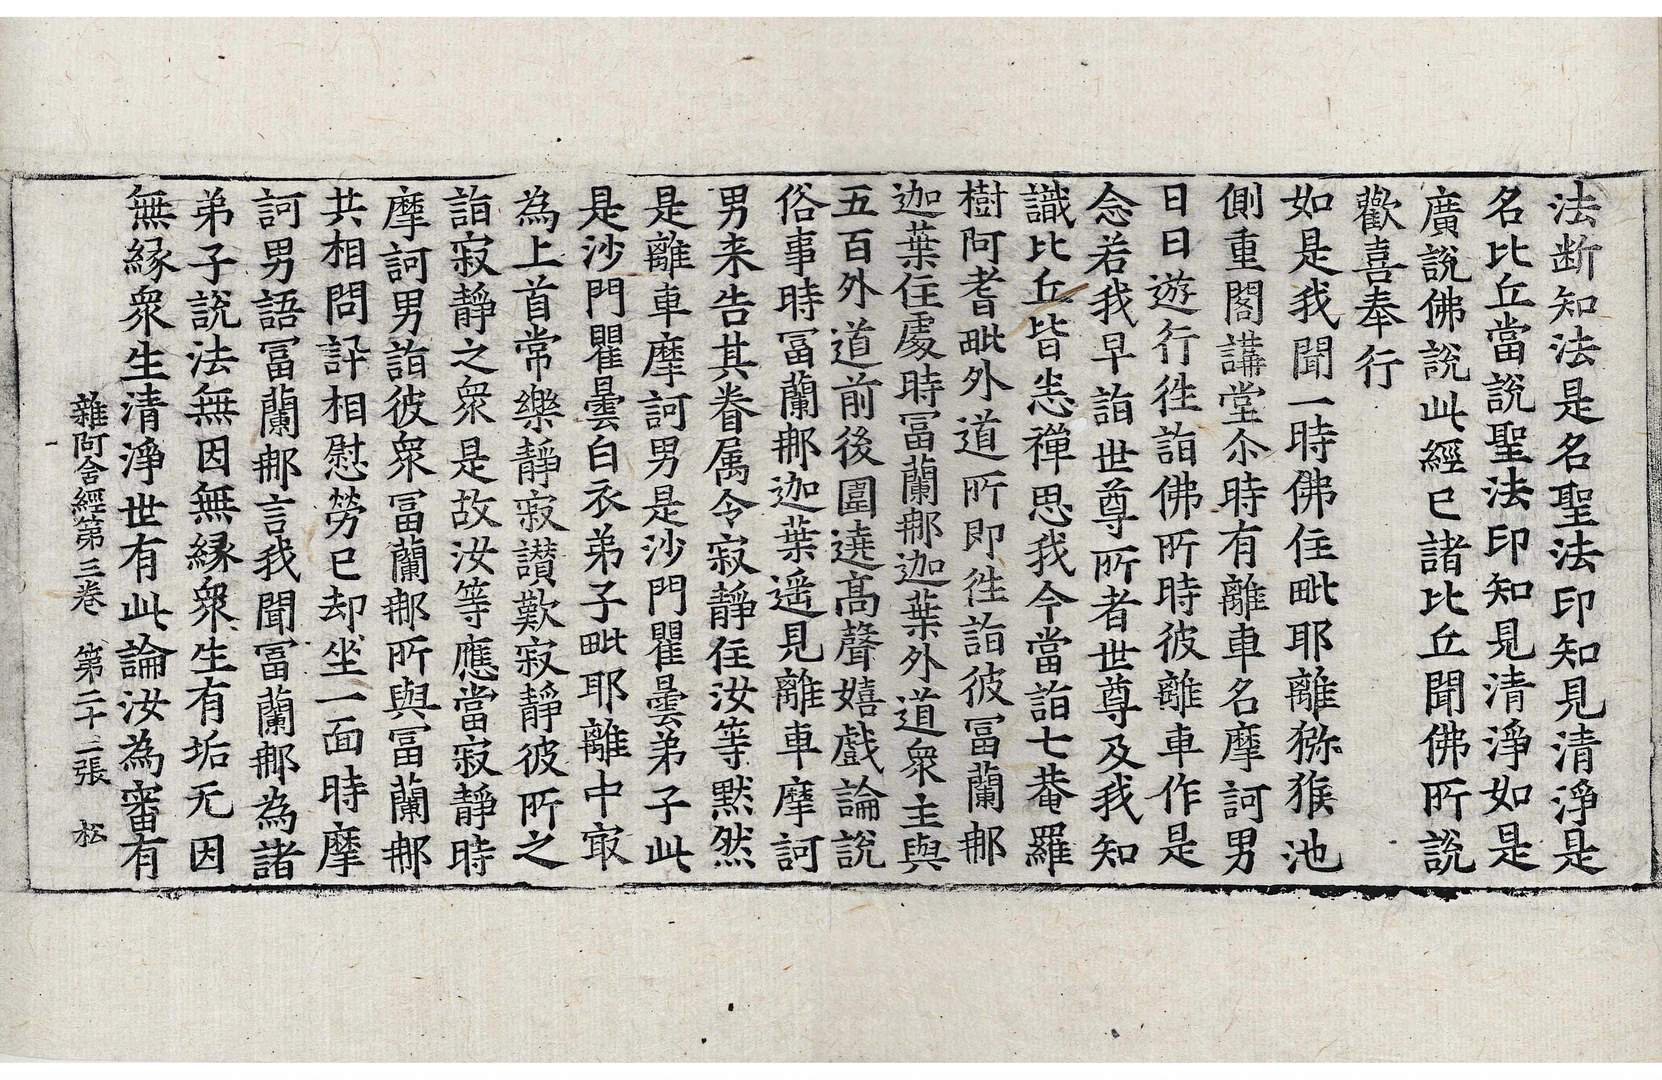 法断知法是名聖法印知見清淨是
名比丘當說聖法印知見清淨如是
廣說佛說此經已諸比丘聞佛所說
歡喜奉行
如是我聞一時佛住毗耶離獼猴池
側重閣講堂尒時有離車名摩訶男
日日遊行徃詣佛所時彼離車作是
念若我早詣世尊所者世尊及我知
識比丘皆悉禪思我今當詣七菴羅
樹阿耆毗外道所即徃詣彼冨蘭𨚗
迦葉住處時冨蘭𨚗迦葉外道衆主與
五百外道前後圍遶髙聲嬉戲論說
俗事時冨蘭𨚗迦葉遥見離車摩訶
男来告其眷属令寂靜住汝等黙然
是離車摩訶男是沙門瞿曇弟子此
是沙門瞿曇白衣弟子毗耶離中㝡
為上首常樂靜寂讃歎寂靜彼所之
詣寂靜之衆是故汝等應當寂靜時
摩訶男詣彼衆冨蘭𨚗所與冨蘭𨚗
共相問訊相慰勞已却坐一面時摩
訶男語冨蘭𨚗言我聞冨蘭𨚗為諸
弟子說法無因無縁衆生有垢无因
無縁衆生清淨世有此論汝為審有
雜阿含經第三卷　第二十二張　松